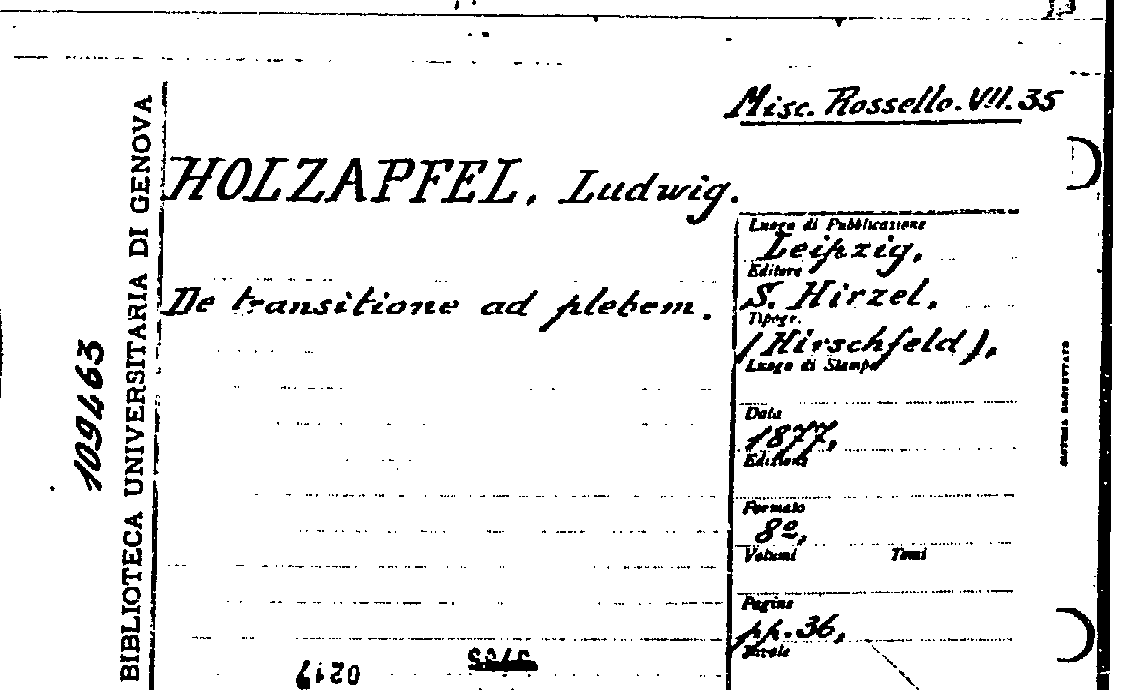 Misc. Rossello. VII. 35
HOLZAPFEL, Ludwig.
De transitione ad plebem.
Luogo di Pubblicazione
Leipzig,
Editore
S. Hirzel,
Tipogr.
(Hirschfeld),
Luogo di Stampa
Data
1877,
Edizione
Formato
8º,
Volumi Tomi
Pagine
pp. 36,
Tavole
BIBLIOTECA UNIVERSITARIA DI GENOVA
109463